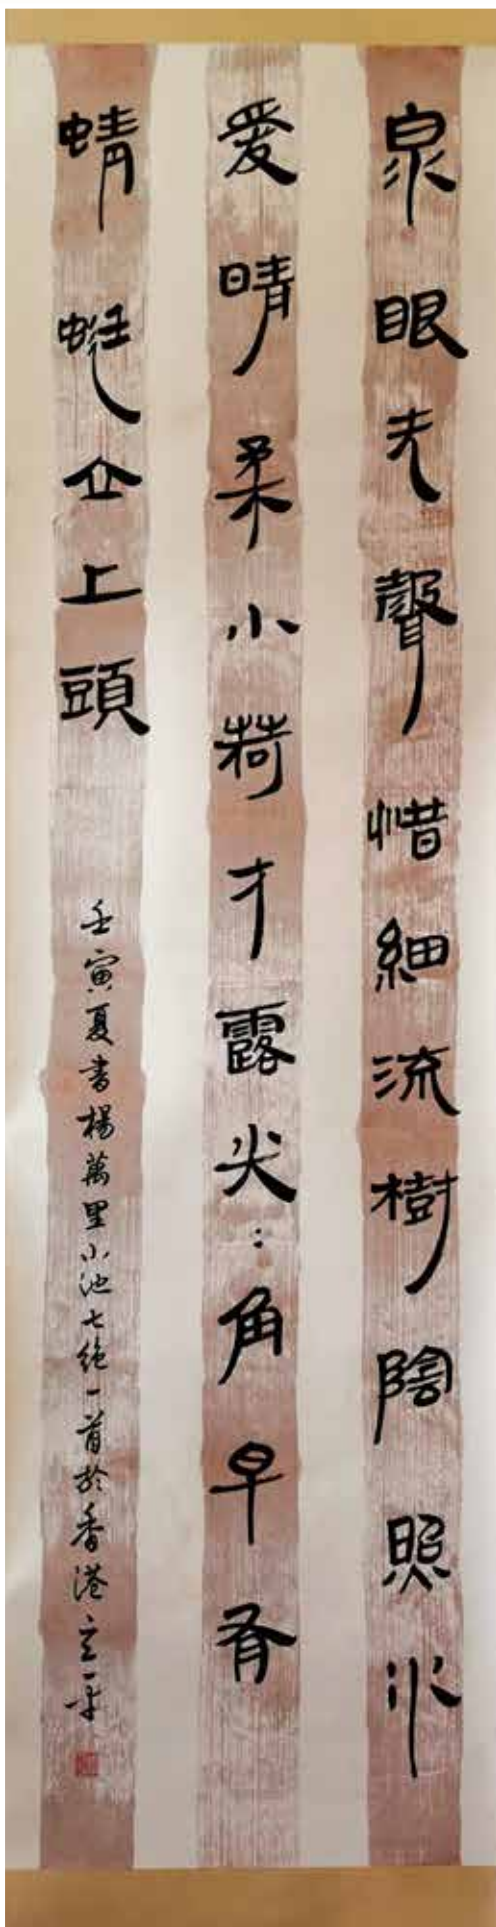 泉眼无聲惜細流樹陰照水
愛晴柔小荷才露尖：角早有
蜻蜓立上頭
壬寅夏書楊萬里小池七絕一首於香港立平